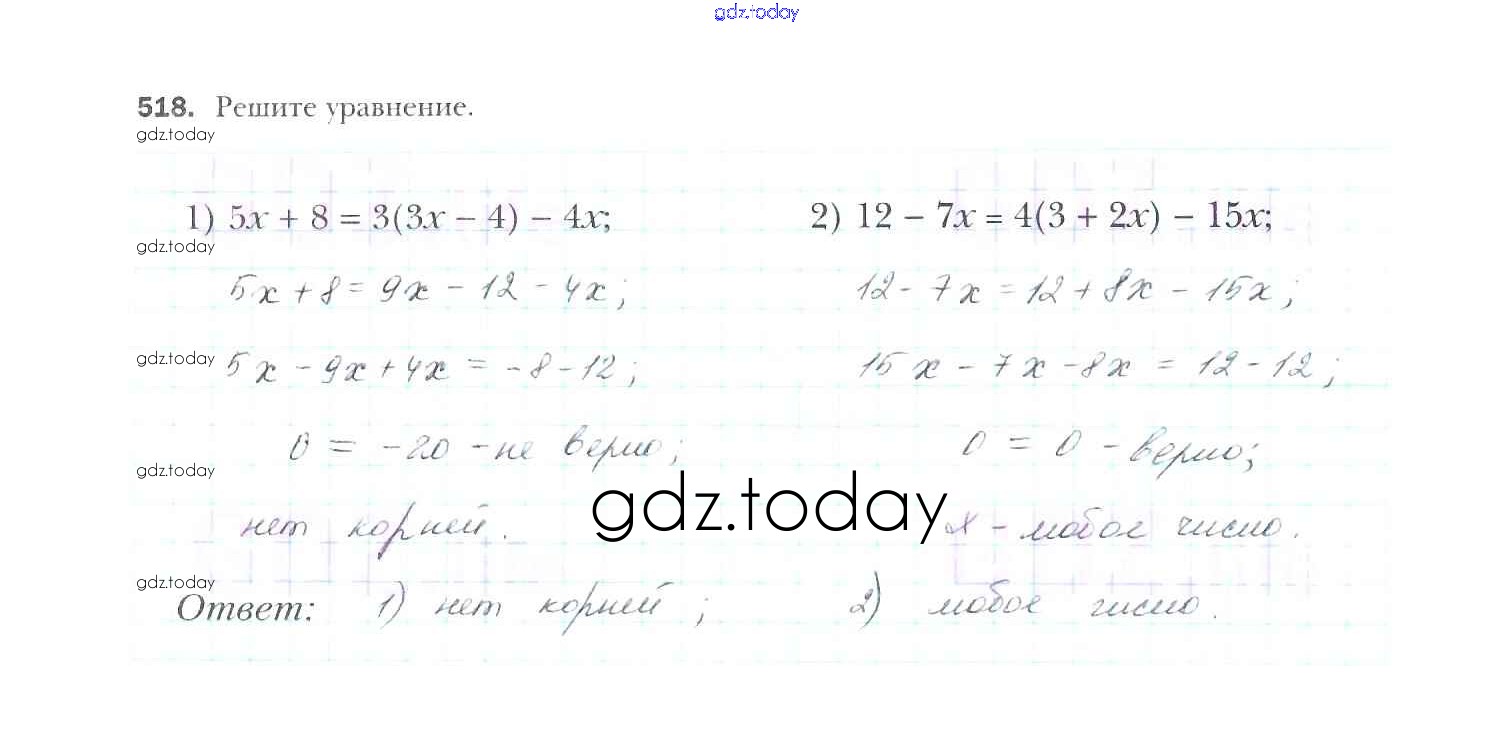 gdz.today
518. Решите уравнение.
gdz.today
1) 5x + 8 = 3(3x − 4) − 4x;
2) 12 − 7x = 4(3 + 2x) − 15x;
gdz.today
5x + 8 = 9x − 12 − 4x;
12 − 7x = 12 + 8x − 15x;
gdz.today
5x − 9x + 4x = −8 − 12;
15x − 7x − 8x = 12 − 12;
0 = −20 − не верно;
0 = 0 − верно;
gdz.today
gdz.today
нет корней.
x − любое число.
gdz.today
Ответ: 1) нет корней; 2) любое число.